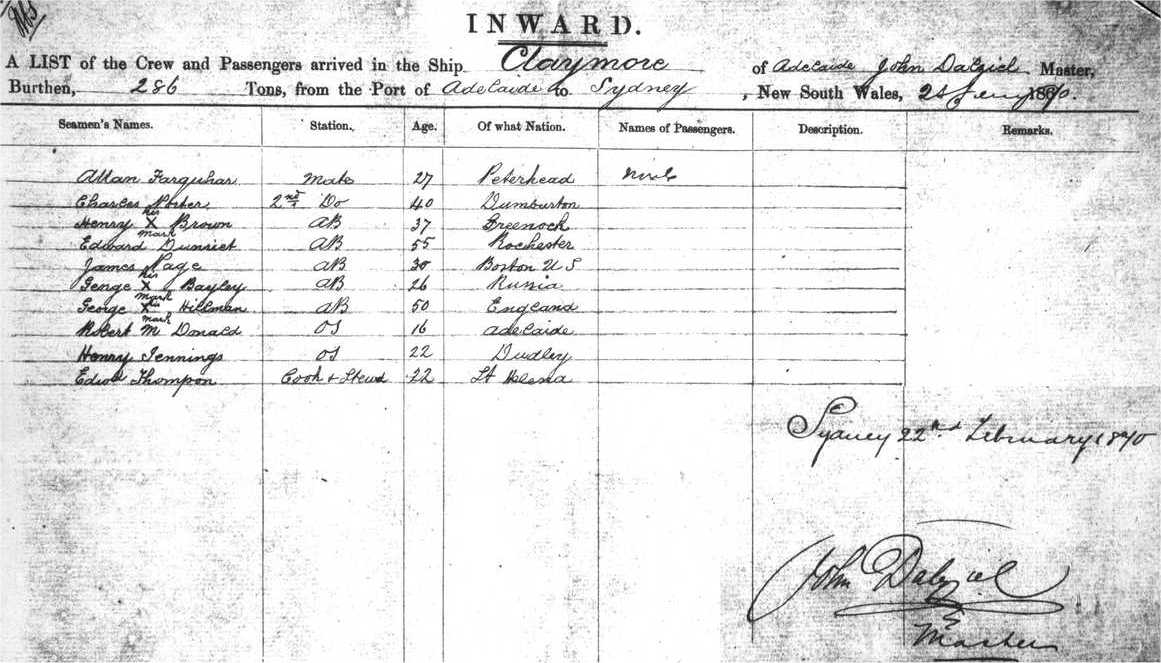 INWARD.
A LIST of the Crew and Passengers arrived in the Ship Claymore of Adelaide John Dalziel Master,
Burthen, 286 Tons, from the Port of Adelaide to Sydney, New South Wales, 1870.
Seamen's Names. Station. Age. Of what Nation. Names of Passengers. Description. Remarks.
Allan Farquhar Mate 27 Peterhead
Charles Porter 2nd Do 40 Dumburton
his
Henry X Brown AB 37 Greenock
mark
Edward AB 55 Rochester
James Page AB 30 Boston U S
his
George X Bayley AB 26 Russia
mark
his
George X Hillman AB 50 England
mark
Robert Mc Donald OS 16 Adelaide
Henry Jennings OS 22 Dudley
Thompson Cook & Stewd 22 St Helena
Sydney 22nd February 1870
John Dalziel
Master